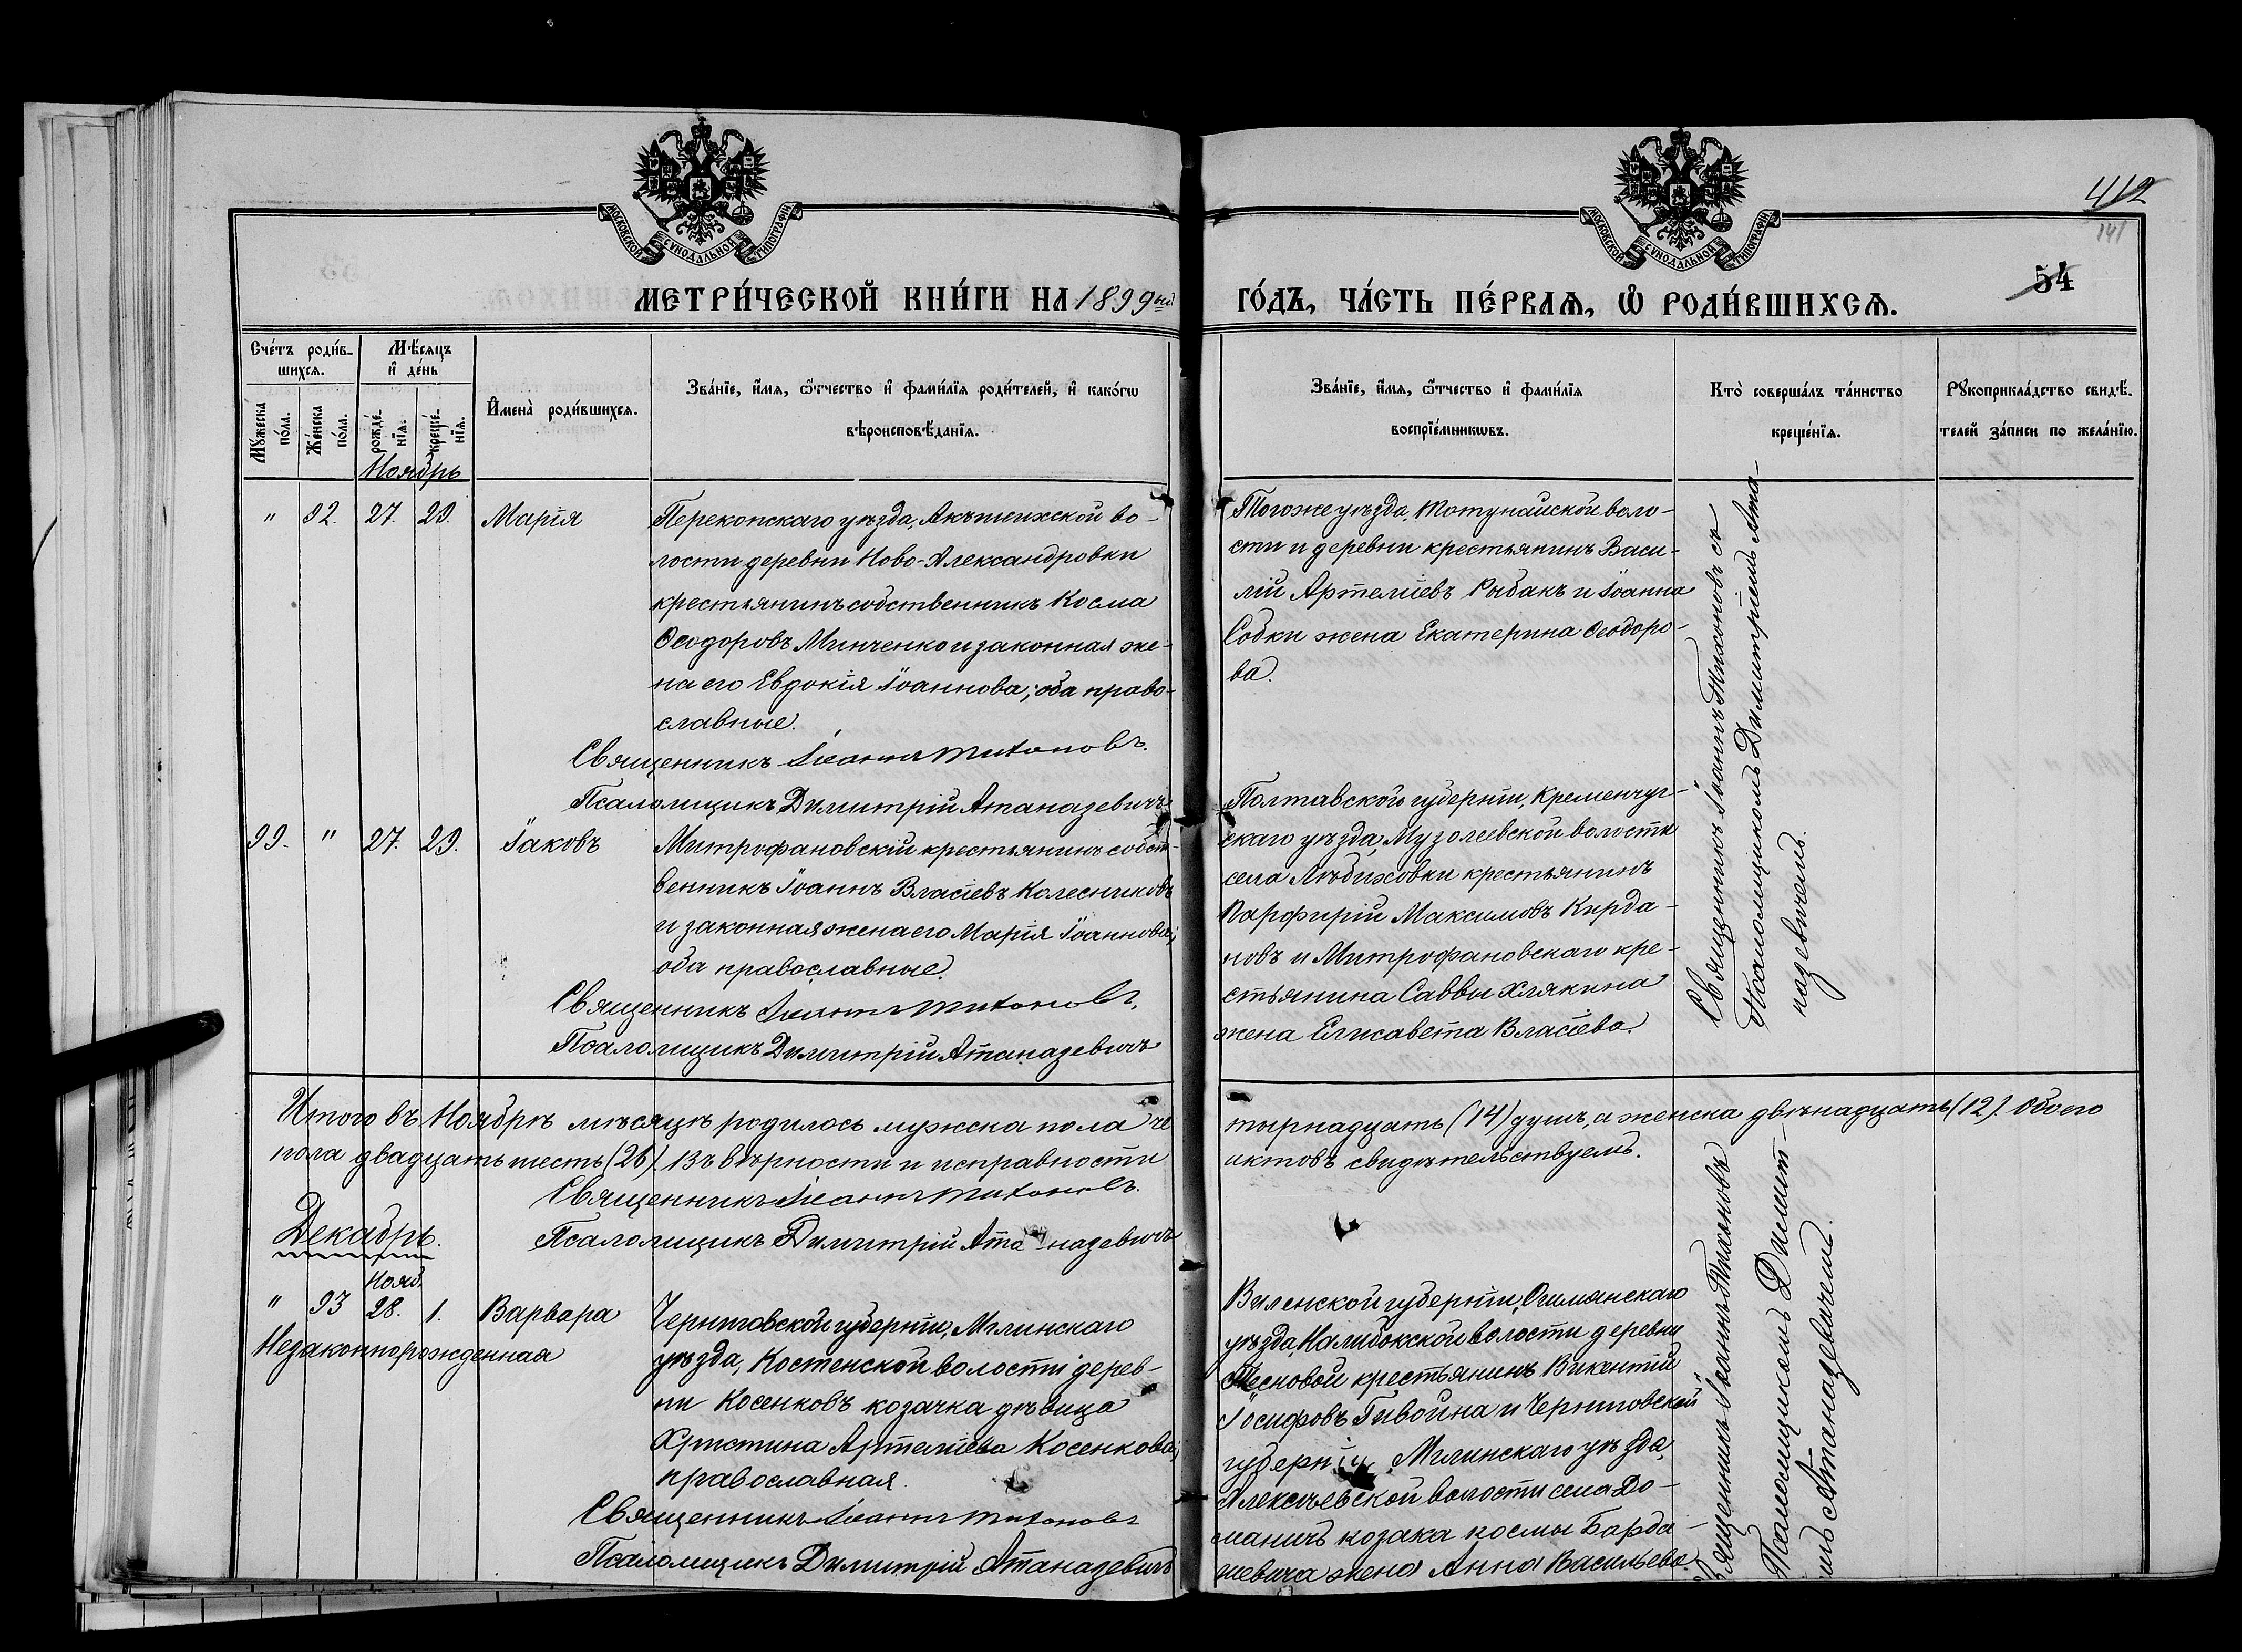 МОСКОВСКОЙ СУНОДАЛЬНОЙ ТИПОГРАФІИ
МОСКОВСКОЙ СУНОДАЛЬНОЙ ТИПОГРАФІИ
412
141
54
МЕТРИ́ЧЕСКОЙ КНИ́ГИ НА 1899ый
ГО́ДЪ, ЧА́СТЬ ПЕ́РВАѦ, Ѡ҆ РОДИ́ВШИХСѦ.
Счéтъ роди́в-
шихсѧ.
Мѣ́сѧцъ
и҆ дéнь
Мꙋ́жеска по́ла.
Жéнска по́ла.
рождé-нїѧ.
крещé-нїѧ.
И҆мена̀ роди́вшихсѧ.
Зва́нїе, и҆́мѧ, ѻ҆́тчество и҆ фами́лїѧ роди́телей, и҆ како́гѡ
вѣроисповѣ́данїѧ.
Зва́нїе, и҆́мѧ, ѻ҆́тчество и҆ фами́лїѧ
воспрїéмникѡвъ.
Кто̀ соверша́лъ та́инство
крещéнїѧ.
Рꙋкоприкла́дство свидѣ́-
телей за́писи по жела́нїю.
Ноябрь
" 92. 27. 29. Марія
Перекопскаго уѣзда, Акъшихской во-
лости деревни Ново-Александровки
крестьянинъ собственникъ Косма
Ѳеодоровъ Минченко и законная же-
на его Евдокія Іоаннова; оба право-
славные.
Священникъ Іоаннъ Тихоновъ.
Псаломщикъ Димитрій Атаназевичъ
Тогоже уѣзда, Тотунайской воло-
сти и деревни крестьянинъ Васи-
лій Артеміевъ Рыбакъ и Іоанна
Собки жена Екатерина Ѳеодоро-
ва.
Священникъ Іоаннъ Тихоновъ съ
Псаломщикомъ Димитріемъ Ата-
назевичемъ.
99. " 27. 29. Іаковъ
Митрофановскій крестьянинъ собст-
венникъ Іоаннъ Власіевъ Колесниковъ
и законная жена его Марія Іоаннова;
оба православные.
Священникъ Іоаннъ Тихоновъ.
Псаломщикъ Димитрій Атаназевичъ
Полтавской губерніи, Кременчуг-
скаго уѣзда, Музолеевской волости
села крестьянинъ
Парфирій Максимовъ Кирда-
новъ и Митрофановскаго кре-
стьянина Саввы Хлякина
жена Елисавета Власіева.
Итого въ Ноябрѣ мѣсяцѣ родилось мужска пола че
тырнадцать (14) душъ, а женска двѣнадцать (12). Обоего
пола двадцать шесть (26). Въ вѣрности и исправности
актовъ свидѣтельствуемъ.
Священникъ Іоаннъ Тихоновъ.
Псаломщикъ Димитрій Ата-назевичъ
Декабрь.
Нояб.
" 93 28. 1. Варвара
Незаконнорожденная
Черниговской губерніи, Мглинскаго
уѣзда, Костенской волости дерев-
ни Косенковъ козачка дѣвица
Христина Артеміева Косенкова;
православная.
Священникъ Іоаннъ Тихоновъ
Псаломщикъ Димитрій Атаназевичъ
Виленской губерніи, Ошмянскаго
уѣзда, Налибокской волости деревни
Тесновой крестьянинъ Викентій
Іосифовъ Гивойна и Черниговской
губерніи, Мглинскаго уѣзда,
Алексѣевской волости села До-
маничъ козака Космы Барда-
шевича жена Анна Васильева.
Священникъ Іоаннъ Тихоновъ
Псаломщикомъ Димит-
емъ Атаназевичемъ.